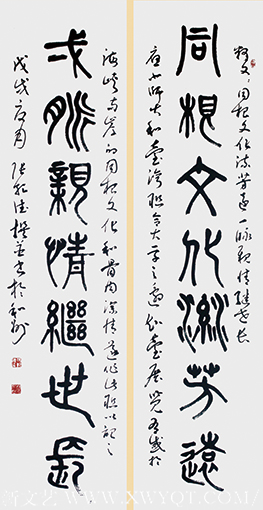 同根文化流芳远
释文：同根文化流芳远一脉亲情继世长
应 师大和台湾联合大学之邀赴台展览有感于
戉脉親情繼世長
海峡两岸的同根文化和骨肉深情遂作此联以记之
戊戌之月 张 德撰并书于和州
新文艺 WWW.XWYQT.COM